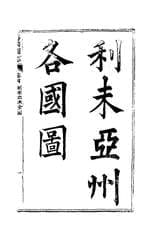 利未亞州
各國圖